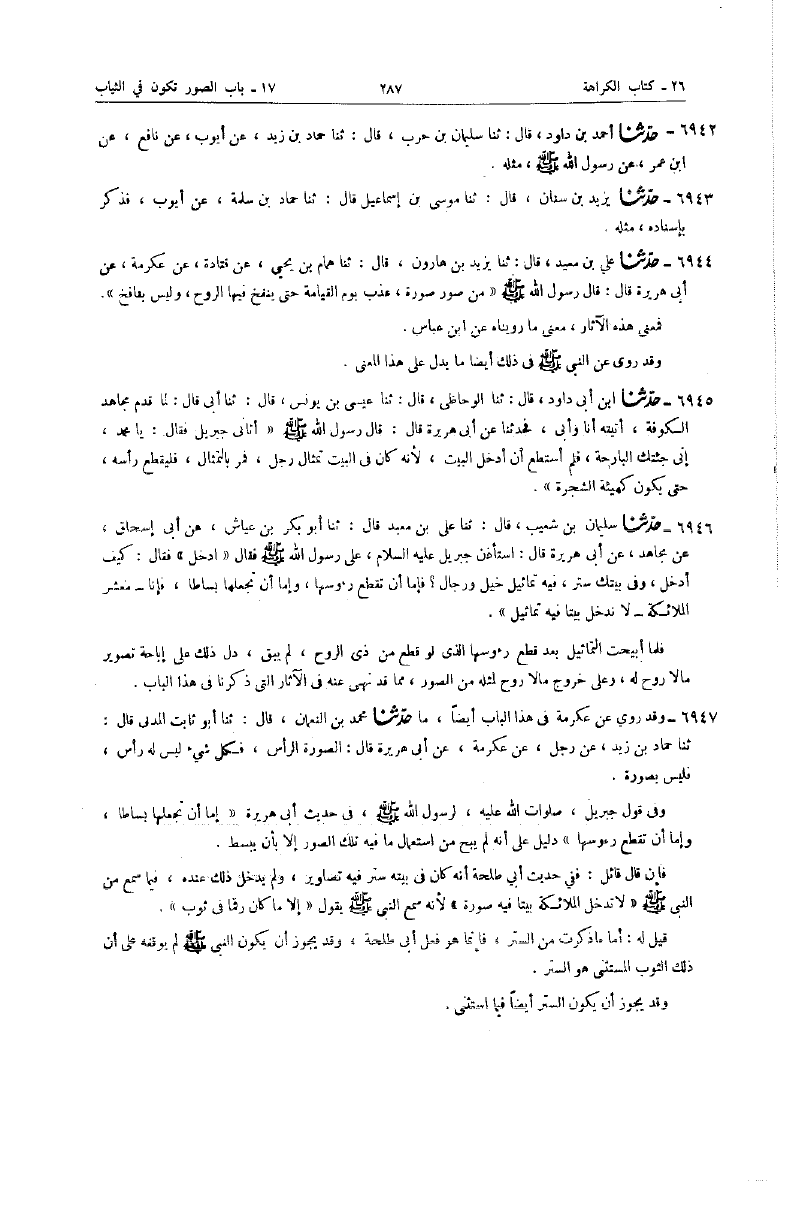 ٢٦ - كتاب الكراهة ٢٨٧ ١٧ - باب الصور تكون في الثياب
٦٩٤٢ - حدّثنا أحمد بن داود ، قال : ثنا سليمان بن حرب ، قال : ثنا حماد بن زيد ، عن أيوب ، عن نافع ، عن
ابن عمر ، عن رسول الله ﷺ ، مثله .
٦٩٤٣ - حدّثنا يزيد بن سنان ، قال : ثنا موسى بن إسماعيل قال : ثنا حماد بن سلمة ، عن أيوب ، فذكر
بإسناده ، مثله .
٦٩٤٤ - حدّثنا علي بن معبد ، قال : ثنا يزيد بن هارون ، قال : ثنا همام بن يحيى ، عن قتادة ، عن عكرمة ، عن
أبى هريرة قال : قال رسول الله ﷺ « من صور صورة ، عذب يوم القيامة حتى ينفخ فيها الروح ، وليس بنافخ » .
فمعنى هذه الآثار ، معنى ما رويناه عن ابن عباس .
وقد روى عن النبى ﷺ فى ذلك أيضا ما يدل على هذا المعنى .
٦٩٤٥ - حدّثنا ابن أبى داود ، قال : ثنا الوحاظى ، قال : ثنا عيسى بن يونس ، قال : ثنا أبى قال : لما قدم مجاهد
الكوفة ، أتيته أنا وأبى ، فحدثنا عن أبى هريرة قال : قال رسول الله ﷺ « أتانى جبريل فقال : يا محمد ،
إنى جئتك البارحة ، فلم أستطع أن أدخل البيت ، لأنه كان فى البيت تمثال رجل ، فمر بالتمثال ، فليقطع رأسه ،
حتى يكون كهيئة الشجرة » .
٦٩٤٦ - حدّثنا سليمان بن شعيب ، قال : ثنا على بن معبد قال : ثنا أبو بكر بن عياش ، عن أبى إسحاق ،
عن مجاهد ، عن أبى هريرة قال : استأذن جبريل عليه السلام ، على رسول الله ﷺ فقال « ادخل » فقال : كيف
أدخل ، وفى بيتك ستر ، فيه تماثيل خيل ورجال ؟ فإما أن تقطع رءوسها ، وإما أن تجعلها بساطا ، فإنا ــ معشر
الملائكة ــ لا ندخل بيتا فيه تماثيل » .
فلما أبيحت التماثيل بعد قطع رءوسها الذى لو قطع من ذى الروح ، لم يبق ، دل ذلك على إباحة تصوير
مالا روح له ، وعلى خروج مالا روح لمثله من الصور ، مما قد نهى عنه فى الآثار التى ذكرنا فى هذا الباب .
٦٩٤٧ - وقد روي عن عكرمة فى هذا الباب أيضاً ، ما حدّثنا محمد بن النعمان ، قال : ثنا أبو ثابت المدنى قال :
ثنا حماد بن زيد ، عن رجل ، عن عكرمة ، عن أبى هريرة قال : الصورة الرأس ، فكل شيء ليس له رأس ،
فليس بصورة .
وفى قول جبريل ، صلوات الله عليه ، لرسول الله ﷺ ، فى حديث أبى هريرة « إما أن تجعلها بساطا ،
وإما أن تقطع رءوسها » دليل على أنه لم يبح من استعمال ما فيه تلك الصور إلا بأن يبسط .
فإن قال قائل : ففي حديث أبي طلحة أنه كان فى بيته ستر فيه تصاوير ، ولم يدخل ذلك عنده ، فيما سمع من
النبى ﷺ « لا تدخل الملائكة بيتا فيه صورة » لأنه سمع النبى ﷺ يقول « إلا ما كان رقما فى ثوب » .
قيل له : أما ماذكرت من الستر ، فإنما هو فعل أبى طلحة ، وقد يجوز أن يكون النبى ﷺ لم يوقفه على أن
ذلك الثوب المستثنى هو الستر .
وقد يجوز أن يكون الستر أيضاً فيما استثنى .